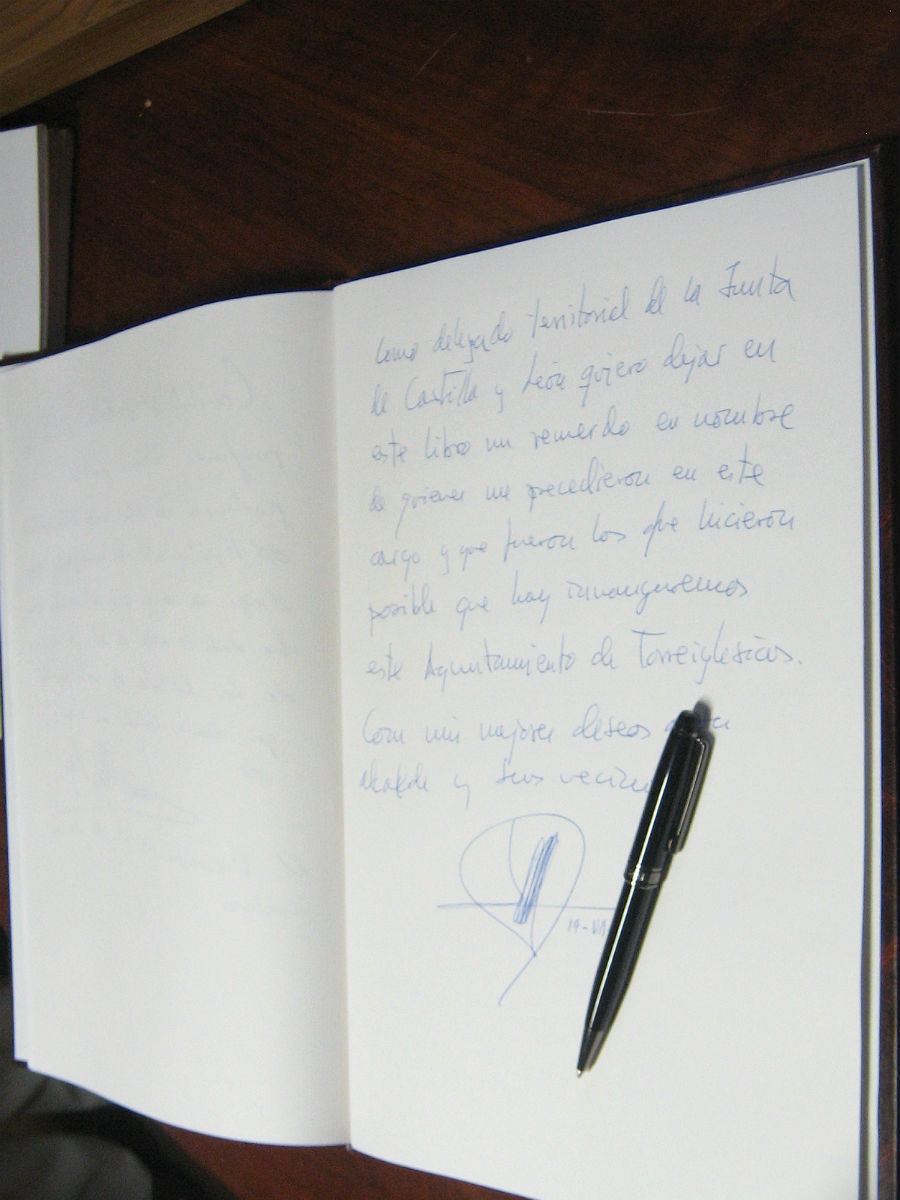 Como delegado territorial de la Junta
de Castilla y León quiero dejar en
este libro un recuerdo en nombre
de quienes me precedieron en este
cargo y que fueron los que hicieron
posible que hoy inauguremos
este Ayuntamiento de Torreiglesias.
Con mis mejores deseos
alcalde y sus vecin
19-VII